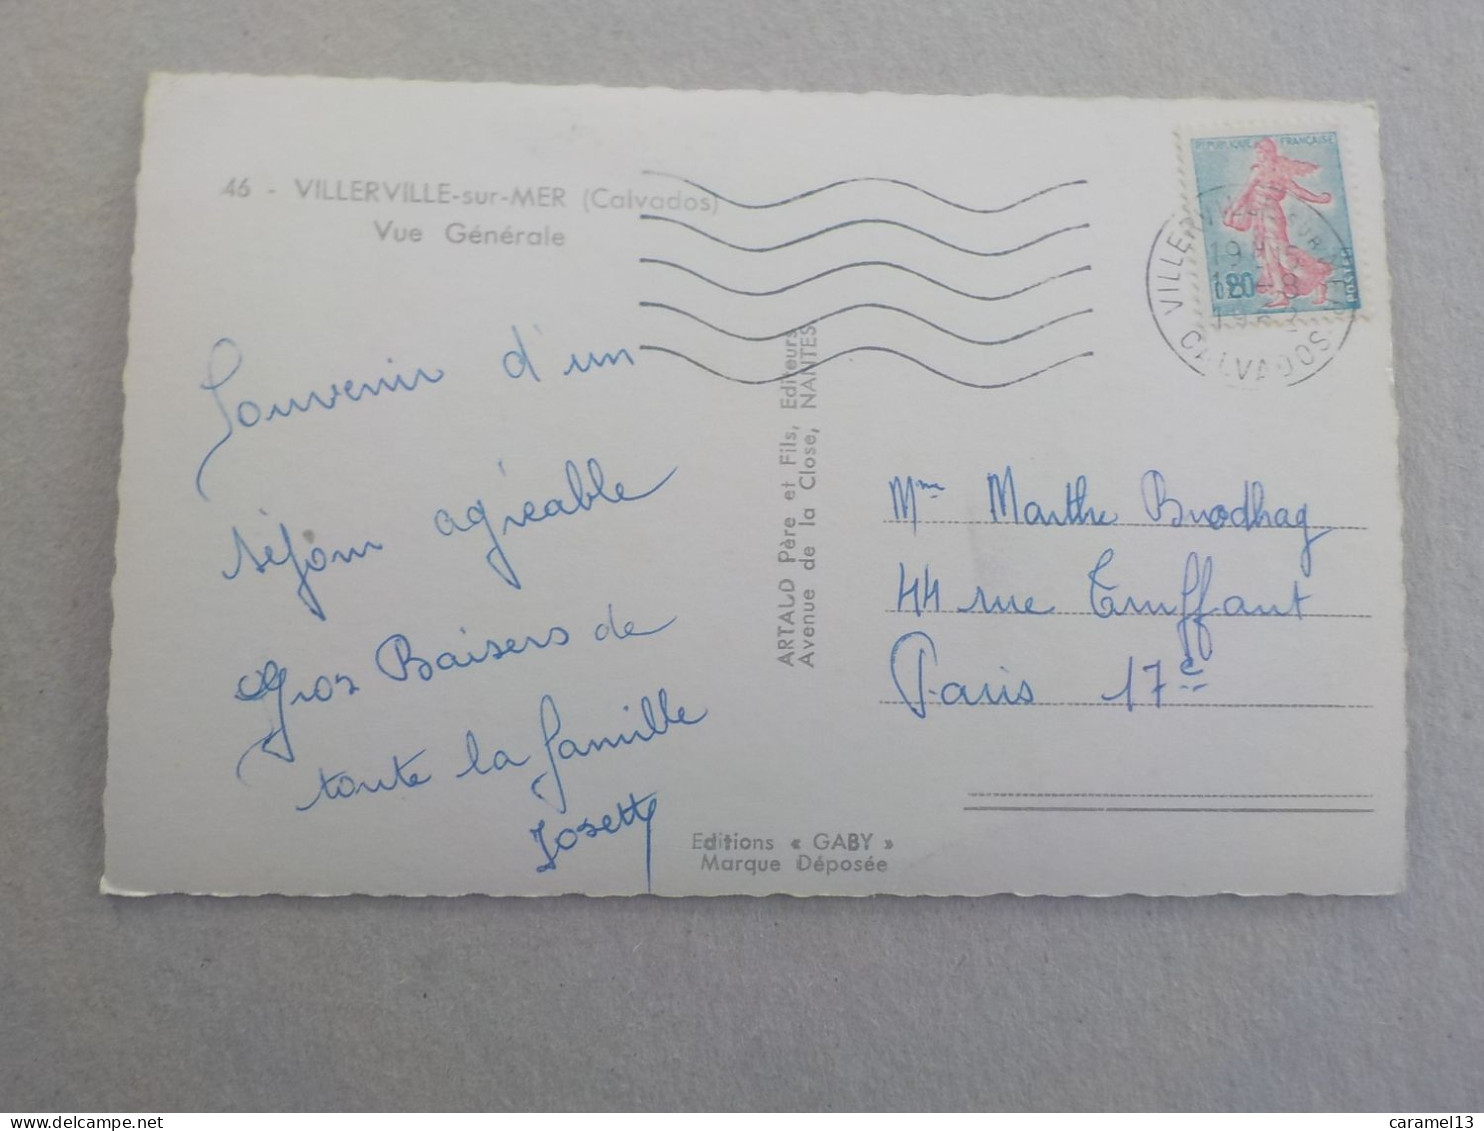 46 - VILLERVILLE-sur-MER (Calvados)
Vue Générale
Souvenir d'un
séjour agréable
Gros Baisers de
toute la famille
Josette
ARTAUD Père et Fils, Editeurs
Avenue de la Close, NANTES
Editions « GABY »
Marque Déposée
REPUBLIQUE FRANÇAISE
CALVADOS
Mme Marthe Brodhag
44 rue Truffaut
Paris 17e
delcampe.net
caramel13